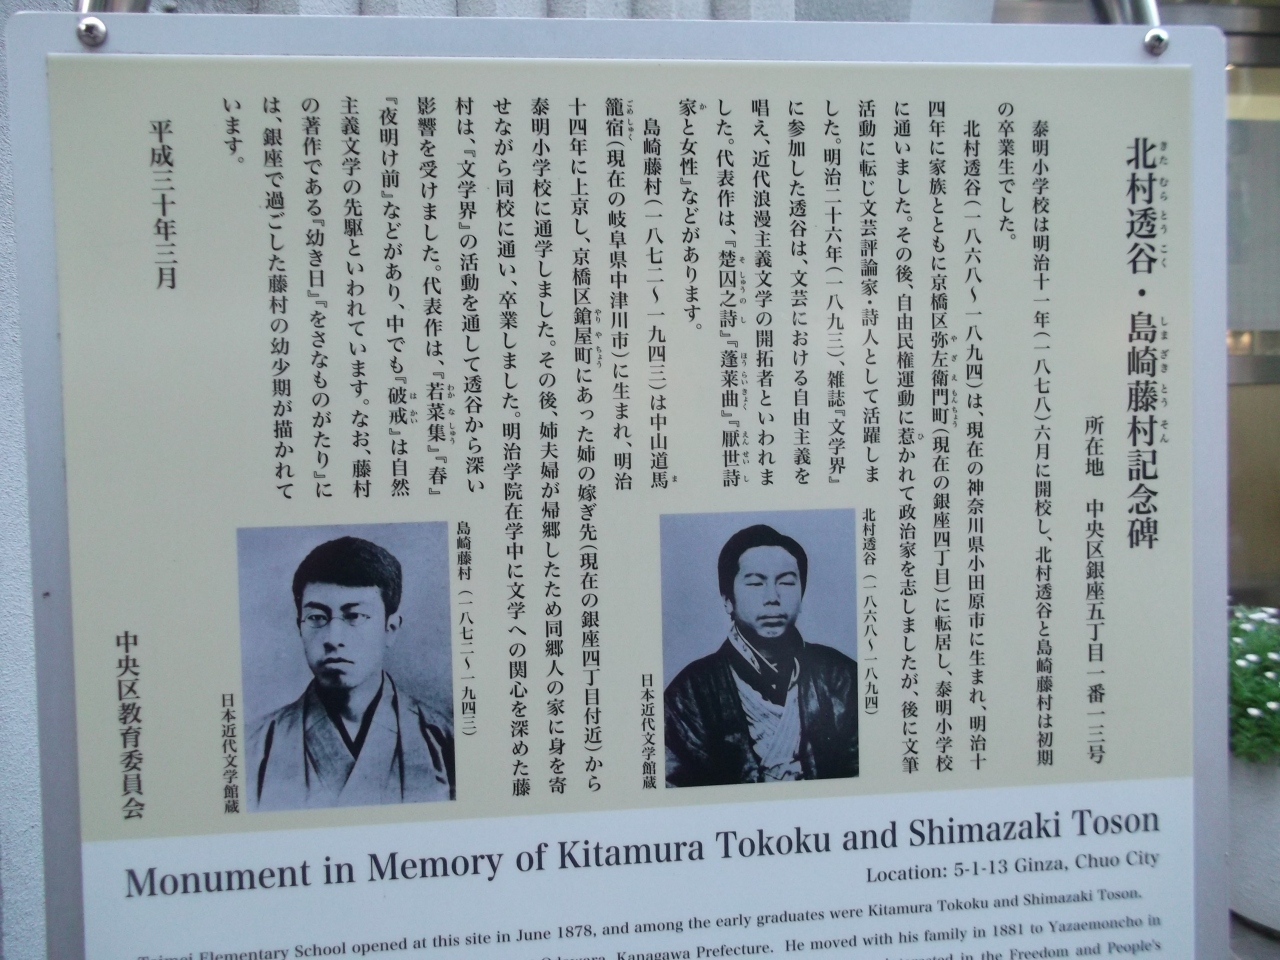 北村透谷・島崎藤村記念碑
きたむらとうこく しまざきとうそん
所在地 中央区銀座五丁目一番一三号
泰明小学校は明治十一年(一八七八)六月に開校し、北村透谷と島崎藤村は初期
の卒業生でした。
北村透谷(一八六八〜一八九四)は、現在の神奈川県小田原市に生まれ、明治十
四年に家族とともに京橋区弥左衛門町(現在の銀座四丁目)に転居し、泰明小学校
やざえもんちょう
に通いました。その後、自由民権運動に惹かれて政治家を志しましたが、後に文筆
ひ
活動に転じ文芸評論家・詩人として活躍しま
した。明治二十六年(一八九三)、雑誌『文学界』
に参加した透谷は、文芸における自由主義を
唱え、近代浪漫主義文学の開拓者といわれま
した。代表作は、『楚囚之詩』『蓬莱曲』『厭世詩
そしゅうのし ほうらいきょく えんせいし
家と女性』などがあります。
か
島崎藤村(一八七二〜一九四三)は中山道馬
ま
籠宿(現在の岐阜県中津川市)に生まれ、明治
ごめしゅく
十四年に上京し、京橋区鎗屋町にあった姉の嫁ぎ先(現在の銀座四丁目付近)から
やりやちょう
泰明小学校に通学しました。その後、姉夫婦が帰郷したため同郷人の家に身を寄
せながら同校に通い、卒業しました。明治学院在学中に文学への関心を深めた藤
村は、『文学界』の活動を通して透谷から深い
影響を受けました。代表作は、『若菜集』『春』
わかなしゅう
『夜明け前』などがあり、中でも『破戒』は自然
はかい
主義文学の先駆といわれています。なお、藤村
の著作である『幼き日』『をさなものがたり』に
は、銀座で過ごした藤村の幼少期が描かれて
います。
平成三十年三月
中央区教育委員会
北村透谷(一八六八〜一八九四)
日本近代文学館蔵
島崎藤村(一八七二〜一九四三)
日本近代文学館蔵
Monument in Memory of Kitamura Tokoku and Shimazaki Toson
Location: 5-1-13 Ginza, Chuo City
Taimei Elementary School opened at this site in June 1878, and among the early graduates were Kitamura Tokoku and Shimazaki Toson.
Odawara, Kanagawa Prefecture. He moved with his family in 1881 to Yazaemoncho in
interested in the Freedom and People's